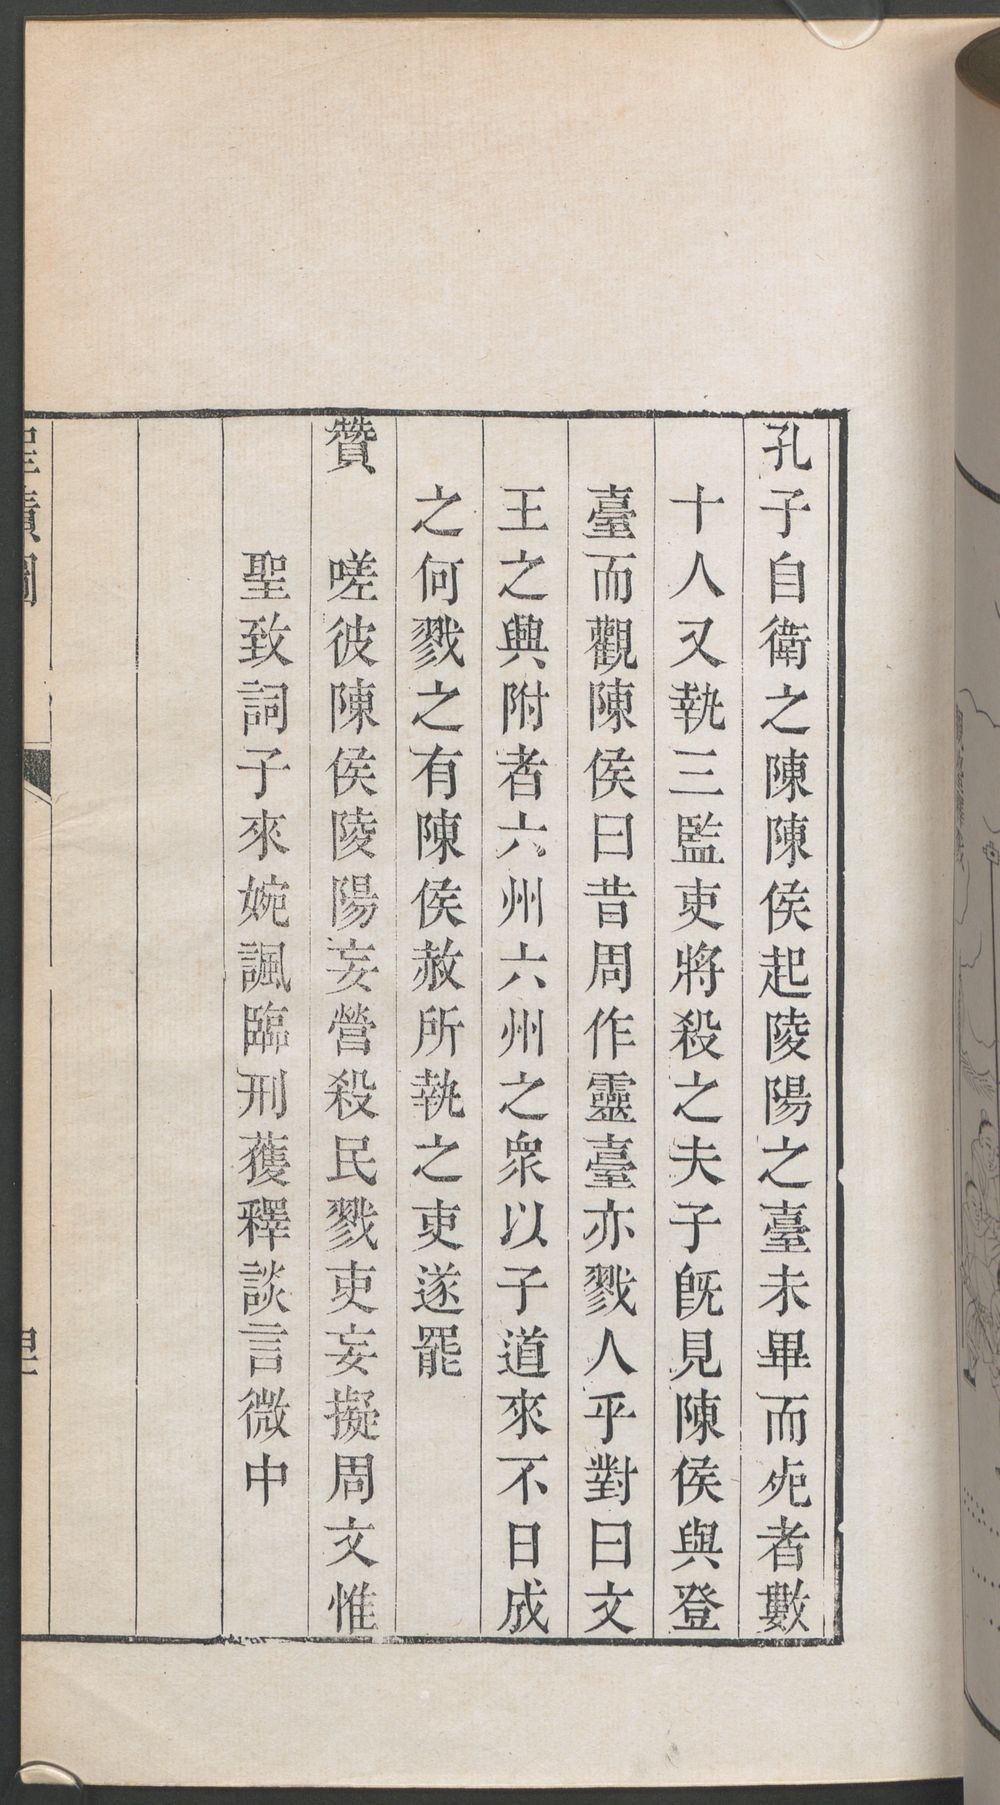 孔子自衛之陳陳侯起陵陽之臺未畢而死者數
十人又執三監吏將殺之夫子旣見陳侯與登
臺而觀陳侯曰昔周作靈臺亦戮人乎對曰文
王之興附者六州六州之衆以子道來不日成
之何戮之有陳侯赦所執之吏遂罷
贊 嗟彼陳侯陵陽妄營殺民戮吏妄擬周文惟
聖致詞子來婉諷臨刑獲釋談言微中
聖蹟圖